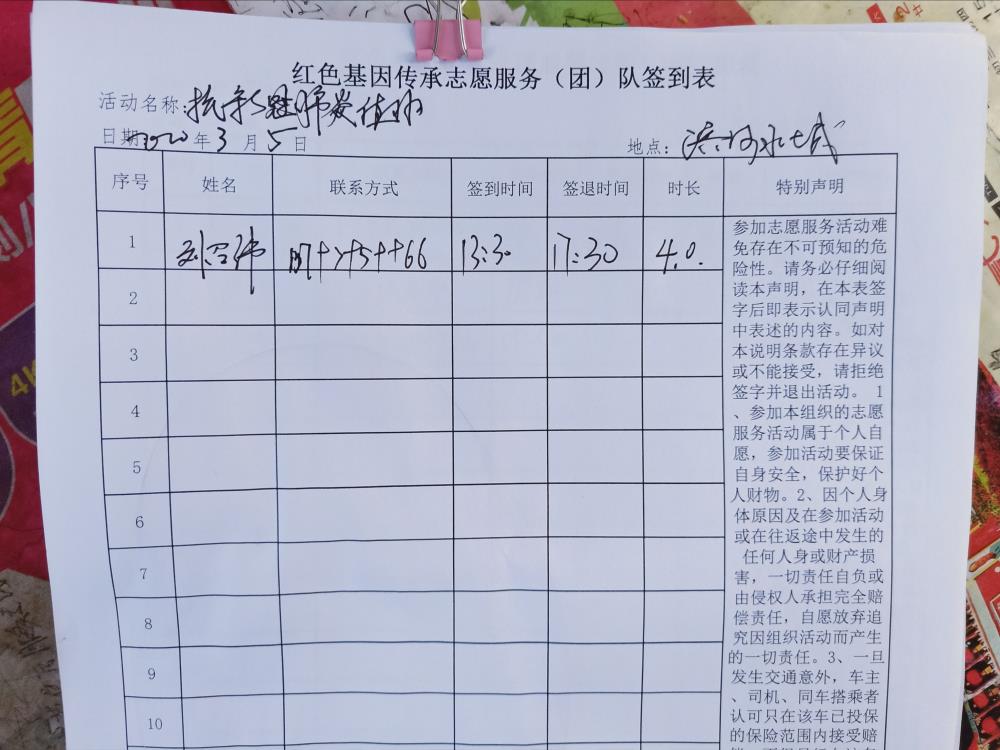 红色基因传承志愿服务（团）队签到表
活动名称：
日期 2020 年 3 月 5 日 地点：滨河水城
序号 姓名 联系方式 签到时间 签退时间 时长 特别声明
1 13:30 17:30 4.0.
2
3
4
5
6
7
8
9
10
参加志愿服务活动难
免存在不可预知的危
险性。请务必仔细阅
读本声明，在本表签
字后即表示认同声明
中表述的内容。如对
本说明条款存在异议
或不能接受，请拒绝
签字并退出活动。 1
、参加本组织的志愿
服务活动属于个人自
愿，参加活动要保证
自身安全，保护好个
人财物。2、因个人身
体原因及在参加活动
或在往返途中发生的
任何人身或财产损
害，一切责任自负或
由侵权人承担完全赔
偿责任，自愿放弃追
究因组织活动而产生
的一切责任。3、一旦
发生交通意外，车主
、司机、同车搭乘者
认可只在该车已投保
的保险范围内接受赔